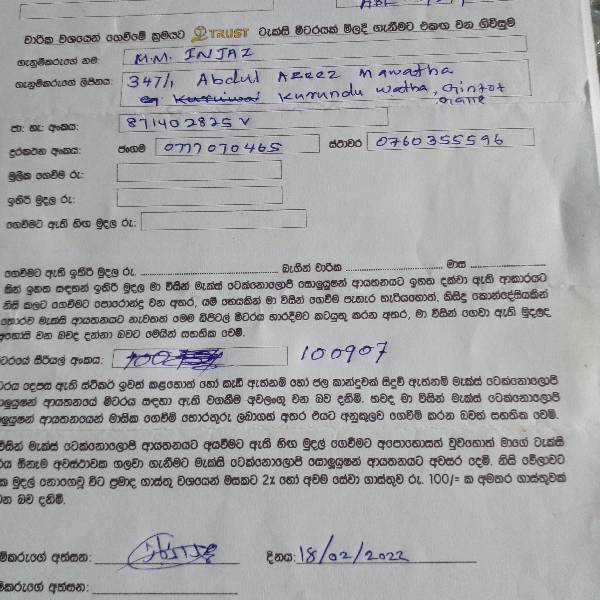 වාරික වශයෙන් ගෙවීමේ ක්‍රමයට TRUST ටැක්සි මීටරයක් මිලදී ගැනීමට එකඟ වන ගිවිසුම
ගැනුම්කරුගේ නම: M.M. INJAZ
ගැනුම්කරුගේ ලිපිනය: 347/1 Abdul Azeez Mawatha
Kurundu Watha, Gintot
Galle
හැ: අංකය: 871402825 V
දුරකථන අංකය: ජංගම 0777070465 ස්ථාවර 0760355596
මූලික ගෙවීම රු:
ඉතිරි මුදල රු:
ගෙවීමට ඇති හිඟ මුදල රු:
ගෙවීමට ඇති ඉතිරි මුදල රු. බැගින් වාරික මාස
මින් ඉහත සඳහන් ඉතිරි මුදල මා විසින් මැක්ස් ටෙක්නොලොජි සොලුයුෂන් ආයතනයට ඉහත දක්වා ඇති ආකාරයට
නිසි කලට ගෙවීමට පොරොන්දු වන අතර, යම් හෙයකින් මා විසින් ගෙවීම් පැහැර හැරියහොත්, කිසිදු කොන්දේසියකින්
තොරව මැක්සි ආයතනයට නැවතත් මෙම ඩිජිටල් මීටරය භාරදීමට කටයුතු කරන අතර, මා විසින් ගෙවා ඇති මුදල
අහෝසි වන බවද දන්නා බවට මෙයින් සහතික වෙමි.
සීරියල් අංකය: 100907
දෙපස ඇති ස්ටිකර් ඉවත් කළහොත් හෝ කැඩී ඇත්නම් හෝ ජල කාන්දුවක් සිදුවී ඇත්නම් මැක්ස් ටෙක්නොලොජි
ආයතනයේ මීටරය සඳහා ඇති වගකීම අවලංගු වන බව දනිමි. තවද මා විසින් මැක්ස් ටෙක්නොලොජි
ආයතනයෙන් මාසික ගෙවීම් තොරතුරු ලබාගත් අතර එයට අනුකූලව ගෙවීම් කරන බවත් සහතික වෙමි.
විසින් මැක්ස් ටෙක්නොලොජි ආයතනයට අයවීමට ඇති හිඟ මුදල් ගෙවීමට අපොහොසත් වුවහොත් මාගේ ටැක්සි
ඕනෑම අවස්ථාවක ගලවා ගැනීමට මැක්ස් ටෙක්නොලොජි සොලුයුෂන් ආයතනයට අවසර දෙමි. නිසි වේලාවට
මුදල් නොගෙවූ විට ප්‍රමාද ගාස්තු වශයෙන් මසකට 2% හෝ අවම සේවා ගාස්තුව රු. 100/= ක අමතර ගාස්තුවක්
බව දනිමි.
අත්සන: දිනය: 18/02/2022
අත්සන: